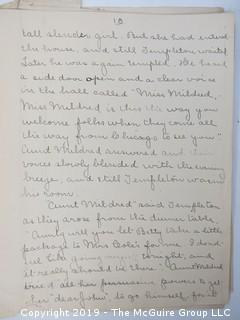 10
tall slender girl. But she had entered
the house, and still Templeton waited
Later he was again tempted. He heard
a side door open and a clear voice
in the hall called "Miss Mildred,
Miss Mildred is this the way you
welcome folks when they come all
the way from Chicago to see you"
Aunt Mildred answered and
voices slowly blended with the evening
breeze, and still Templeton was in
his room.
"Aunt Mildred" said Templeton
as they arose from the dinner table.
"Aunty will you let Betty take a little
package to Miss for me. I don't
feel like going tonight, and
it really should be there". Aunt Mildred
used all her persuasive powers to get
her "dear John" to go himself, for it
Copyright 2019 - The McGuire Group